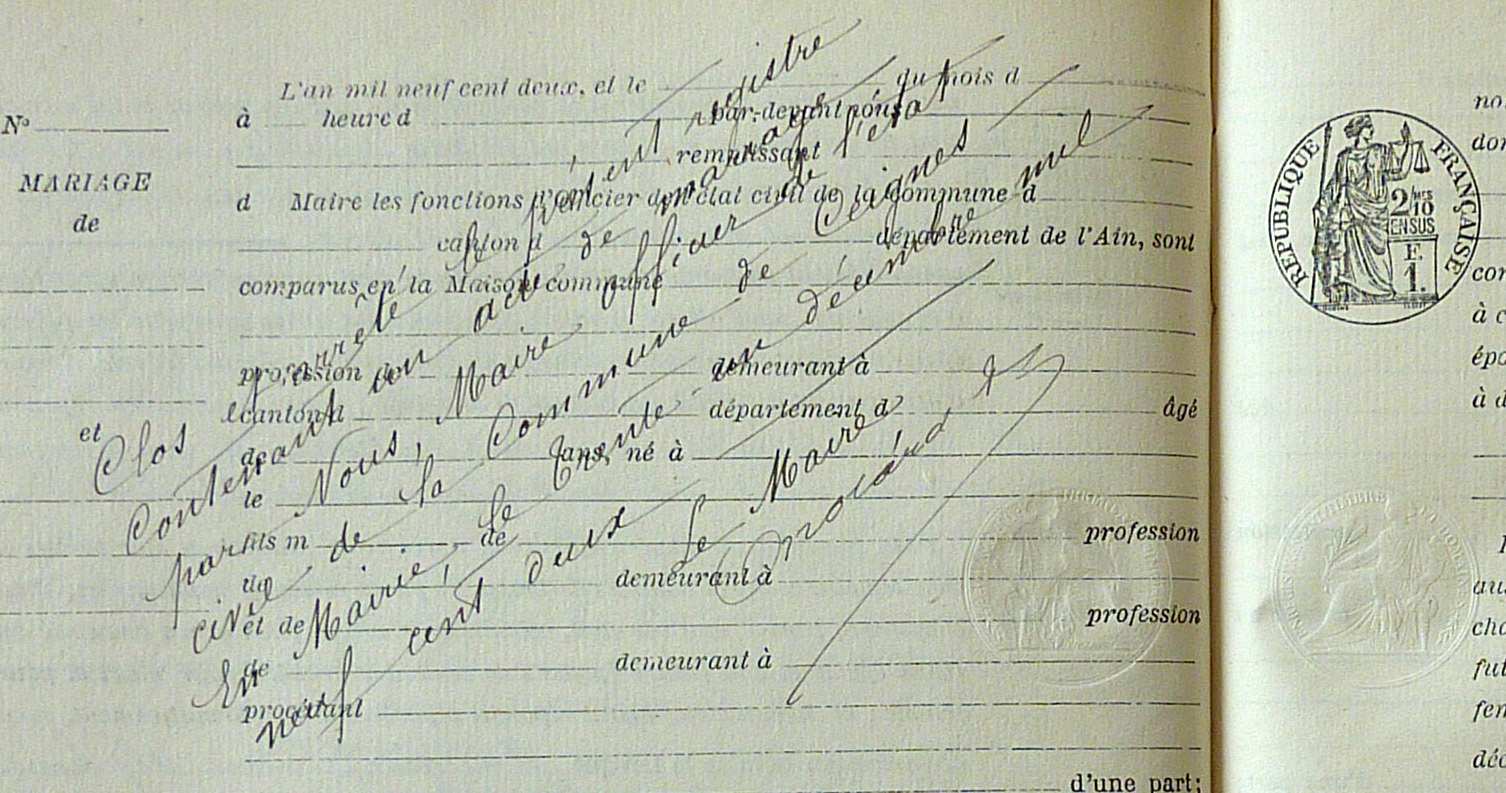 L'an mil neuf cent deux, et le du mois d
à heure d par-devant nous
remplissant
d Maire les fonctions d'officier de l'état civil de la Commune d
canton d département de l'Ain, sont
comparus en la Maison commune
profession de demeurant à
canton d département d âgé
de ans, né à
le
fils m de profession
de demeurant à
et de profession
de demeurant à
procédant
d'une part;
N°
MARIAGE
de
et
Clos et arrêté le présent registre
Contenant un acte de mariage
par Nous, Maire officier de l'état
civil de la Commune de Ceignes
En Mairie, le trente-un décembre mil
neuf cent deux
Le Maire
RÉPUBLIQUE FRANÇAISE
2/10
EN SUS
F.
1.
no
don
con
à c
épo
à d
aus
cha
fut
fen
déc